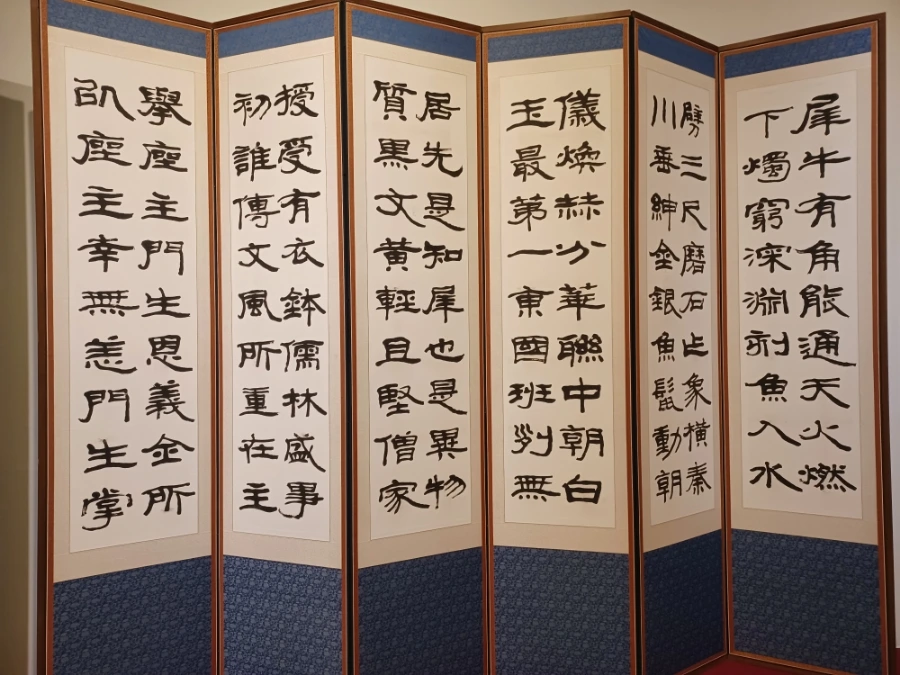 犀牛有角能通天火燃
下燭窮深淵刻魚入水
劈三尺磨石象橫秦
川垂紳金銀魚鬣動朝
儀煥赫分華聯中朝白
玉最第一東國班列無
居先是知犀也是異物
質黑文黃輕且堅僧家
授受有衣鉢儒林盛事
初誰傳文風所重在主
擧座主門生恩義全所
卬座主幸無恙門生掌